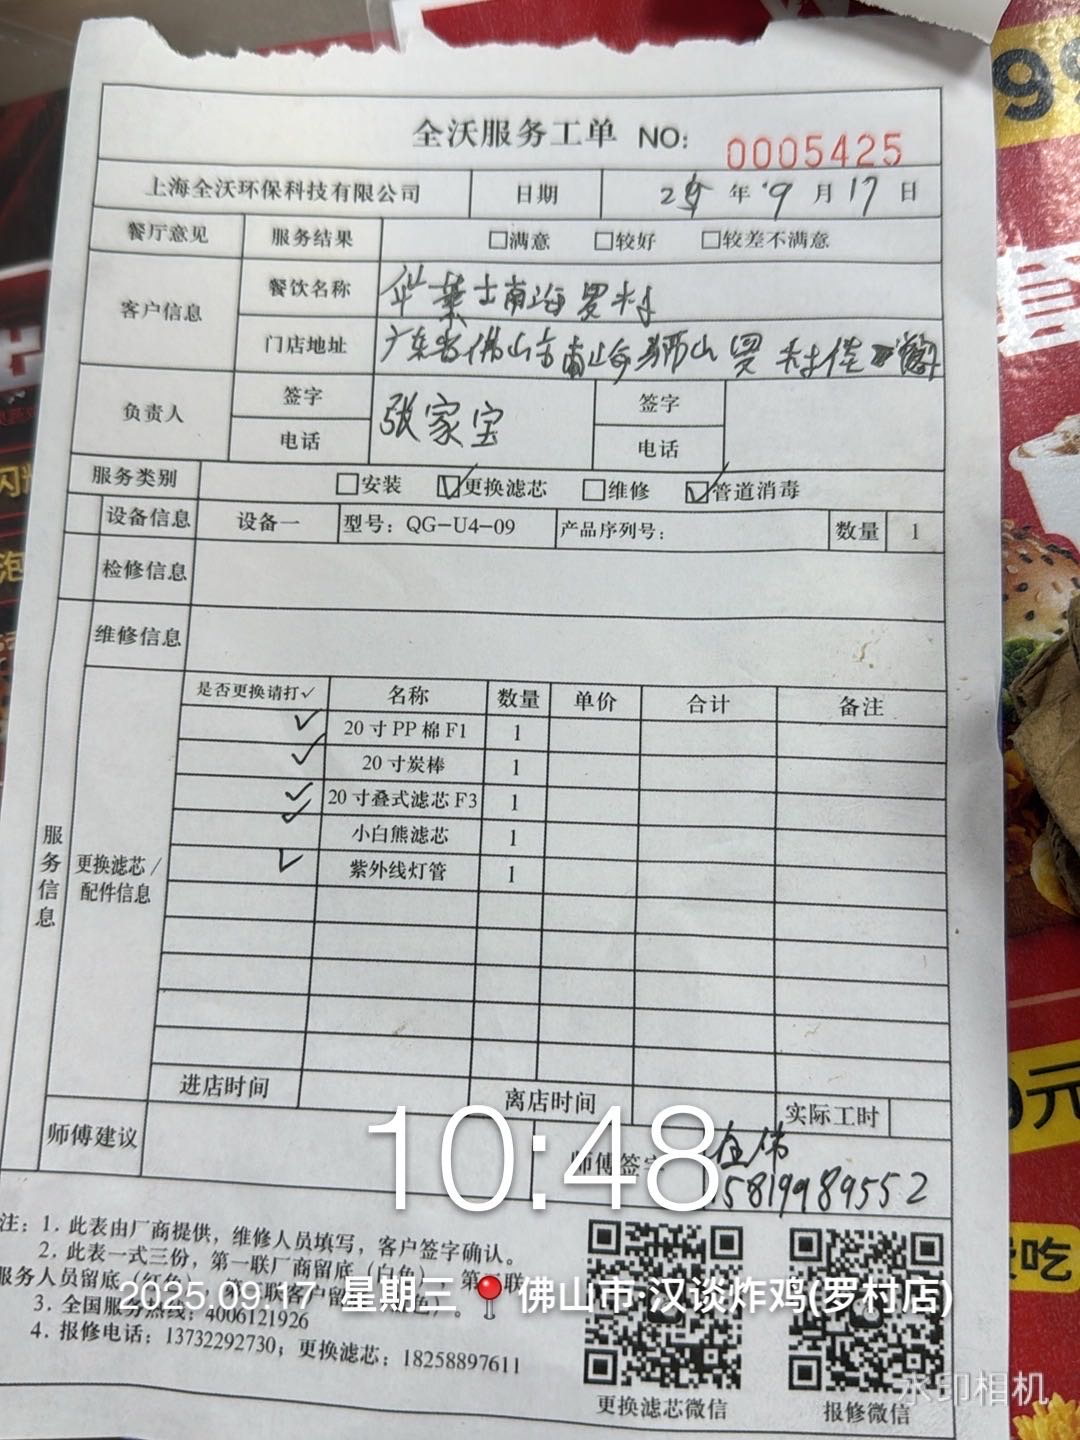 全沃服务工单 NO: 0005425
上海全沃环保科技有限公司 日期 25年9月17日
餐厅意见 服务结果 □满意 □较好 □较差不满意
客户信息 餐饮名称 华莱士南海罗村
门店地址 广东省佛山市南海狮山罗村
负责人 签字 张家宝 签字
电话 电话
服务类别 □安装 ☑更换滤芯 □维修 ☑管道消毒
设备信息 设备一 型号：QG-U4-09 产品序列号： 数量 1
检修信息
维修信息
服务信息
更换滤芯/
配件信息
是否更换请打✓ 名称 数量 单价 合计 备注
✓ 20寸PP棉F1 1
✓ 20寸炭棒 1
✓ 20寸叠式滤芯F3 1
✓ 小白熊滤芯 1
✓ 紫外线灯管 1
进店时间 离店时间 实际工时
师傅建议 师傅签字 伟
15819989552
10:48
注：1. 此表由厂商提供，维修人员填写，客户签字确认。
2. 此表一式三份，第一联厂商留底（白色） 第 联
服务人员留底（红色） 联客户留 。
2025.09.17 星期三 佛山市·汉谈炸鸡(罗村店)
3. 全国服务热线：4006121926
4. 报修电话：13732292730；更换滤芯：18258897611
更换滤芯微信 报修微信
水印相机
9
元
吃